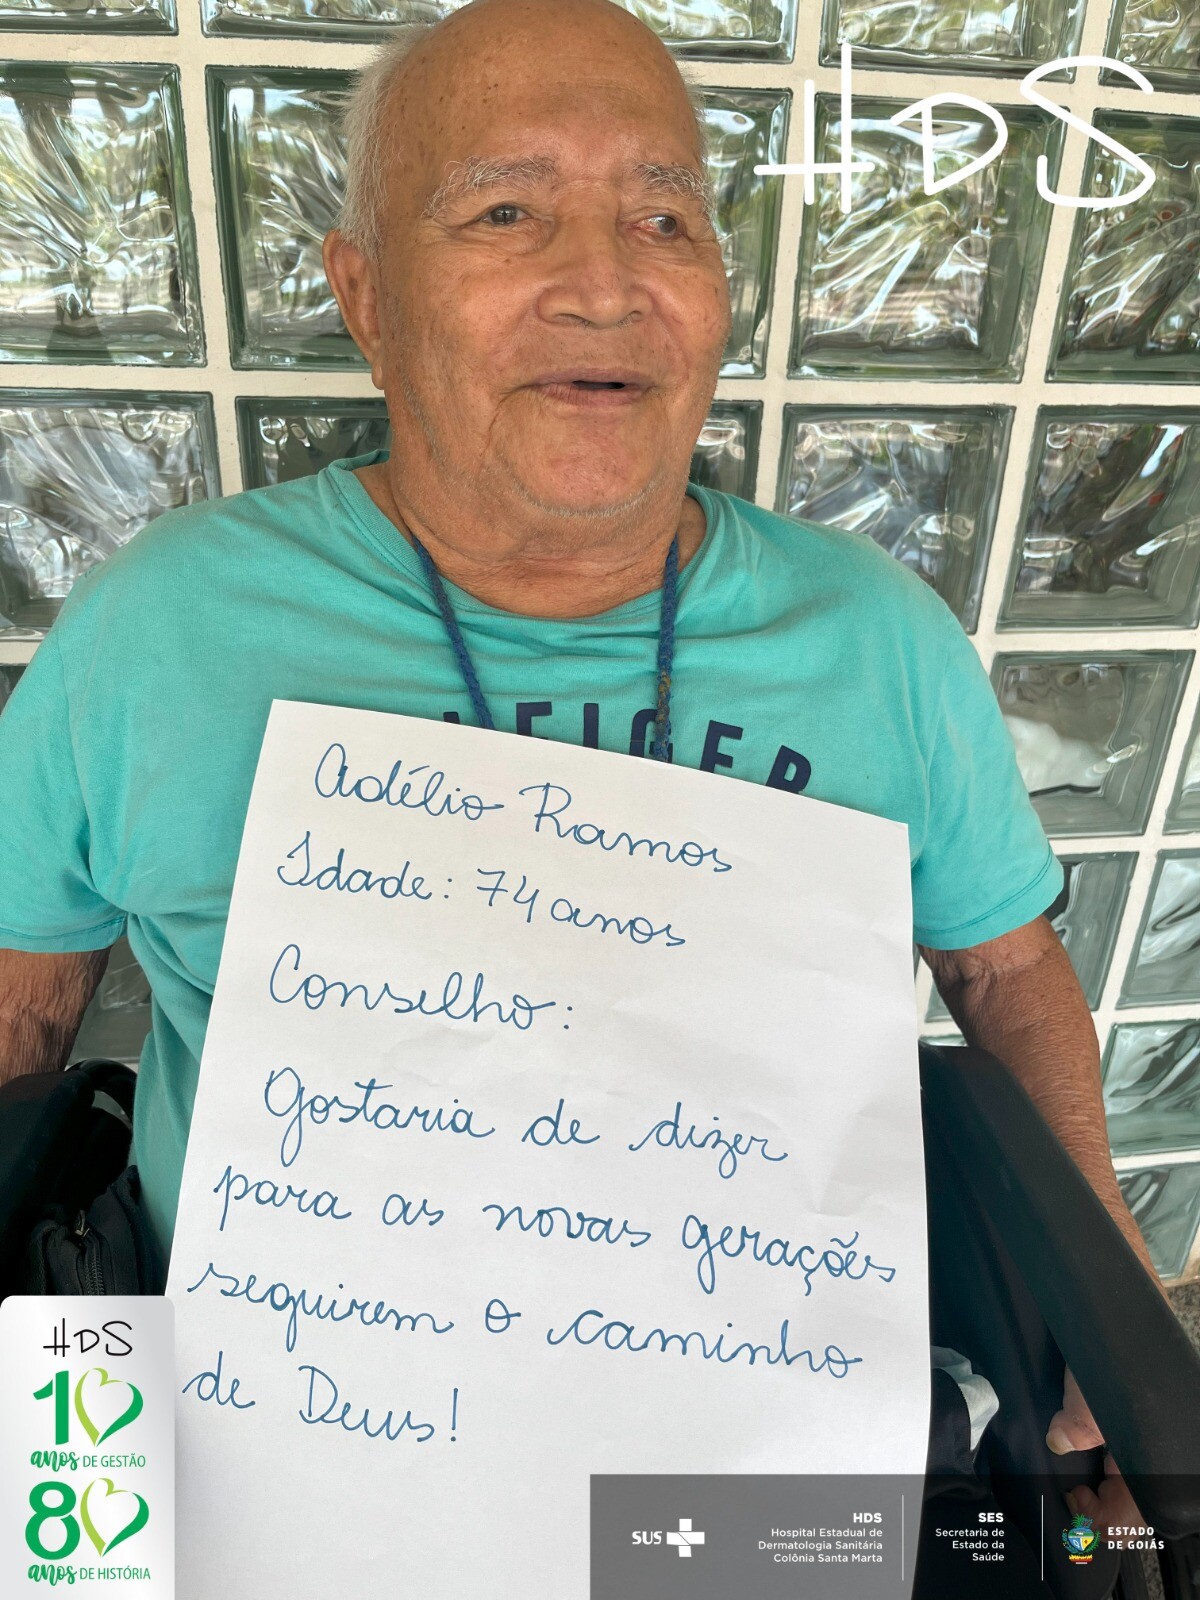 HDS
LEIGER
Adélio Ramos
Idade: 74 anos
Conselho:
Gostaria de dizer
para as novas gerações
seguirem o caminho
de Deus!
HDS
10
anos DE GESTÃO
80
anos DE HISTÓRIA
SUS
HDS
Hospital Estadual de
Dermatologia Sanitária
Colônia Santa Marta
SES
Secretaria de
Estado da
Saúde
ESTADO
DE GOIÁS